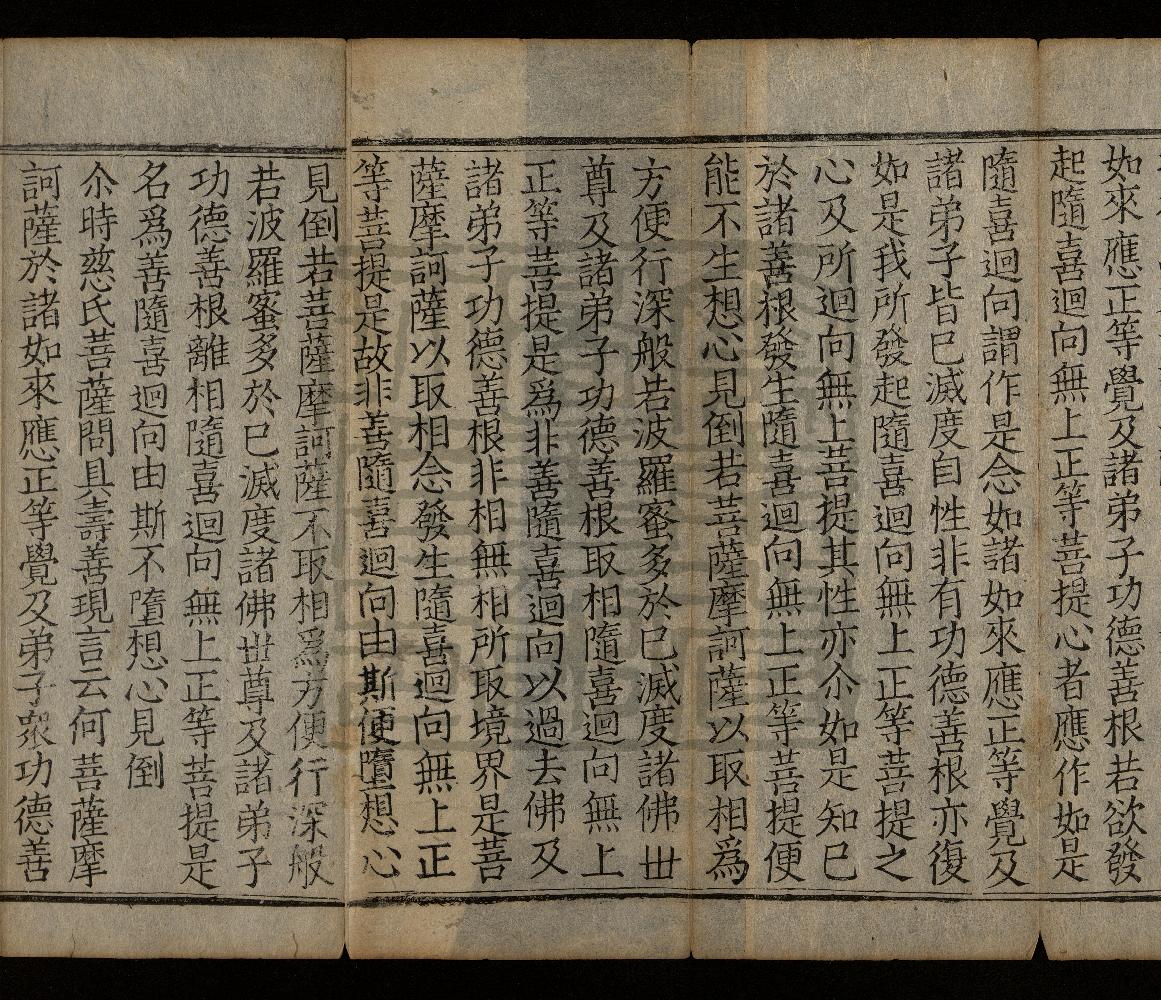 如來應正等覺及諸弟子功德善根若欲發
起隨喜迴向無上正等菩提心者應作如是
隨喜迴向謂作是念如諸如來應正等覺及
諸弟子皆已滅度自性非有功德善根亦復
如是我所發起隨喜迴向無上正等菩提之
心及所迴向無上菩提其性亦尒如是知已
於諸善根發生隨喜迴向無上正等菩提便
能不生想心見倒若菩薩摩訶薩以取相爲
方便行深般若波羅蜜多於已滅度諸佛丗
尊及諸弟子功德善根取相隨喜迴向無上
正等菩提是爲非善隨喜迴向以過去佛及
諸弟子功德善根非相無相所取境界是菩
薩摩訶薩以取相念發生隨喜迴向無上正
等菩提是故非善隨喜迴向由斯便墮想心
見倒若菩薩摩訶薩不取相爲方便行深般
若波羅蜜多於已滅度諸佛丗尊及諸弟子
功德善根離相隨喜迴向無上正等菩提是
名爲善隨喜迴向由斯不墮想心見倒
尒時慈氏菩薩問具壽善現言云何菩薩摩
訶薩於諸如來應正等覺及弟子衆功德善